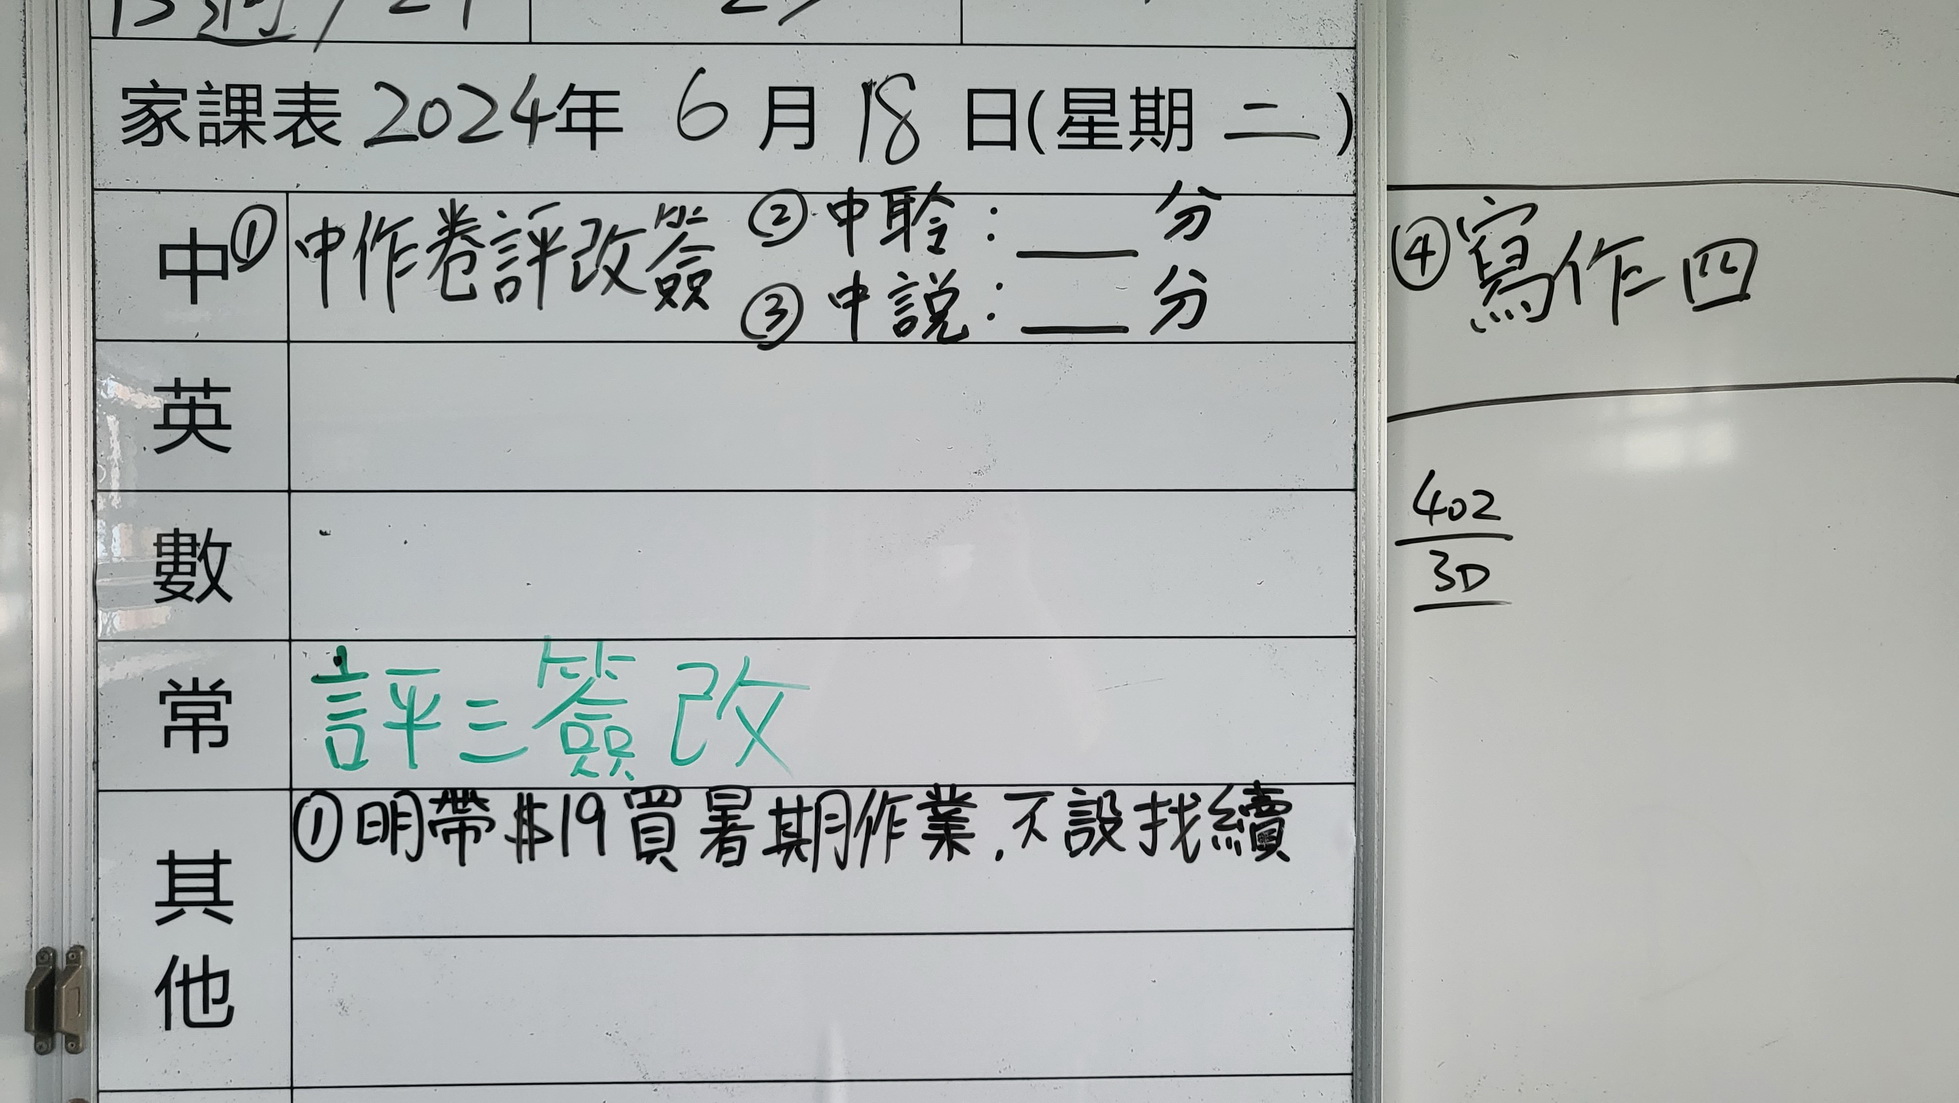 家課表 2024年 6 月 18 日(星期 二 )
中 ① 中作卷評改簽 ② 中聆：___ 分
③ 中説：___ 分
④ 寫作四
英
數
常 評三簽改
其他 ① 明帶$19買暑期作業.不設找續
402
3D